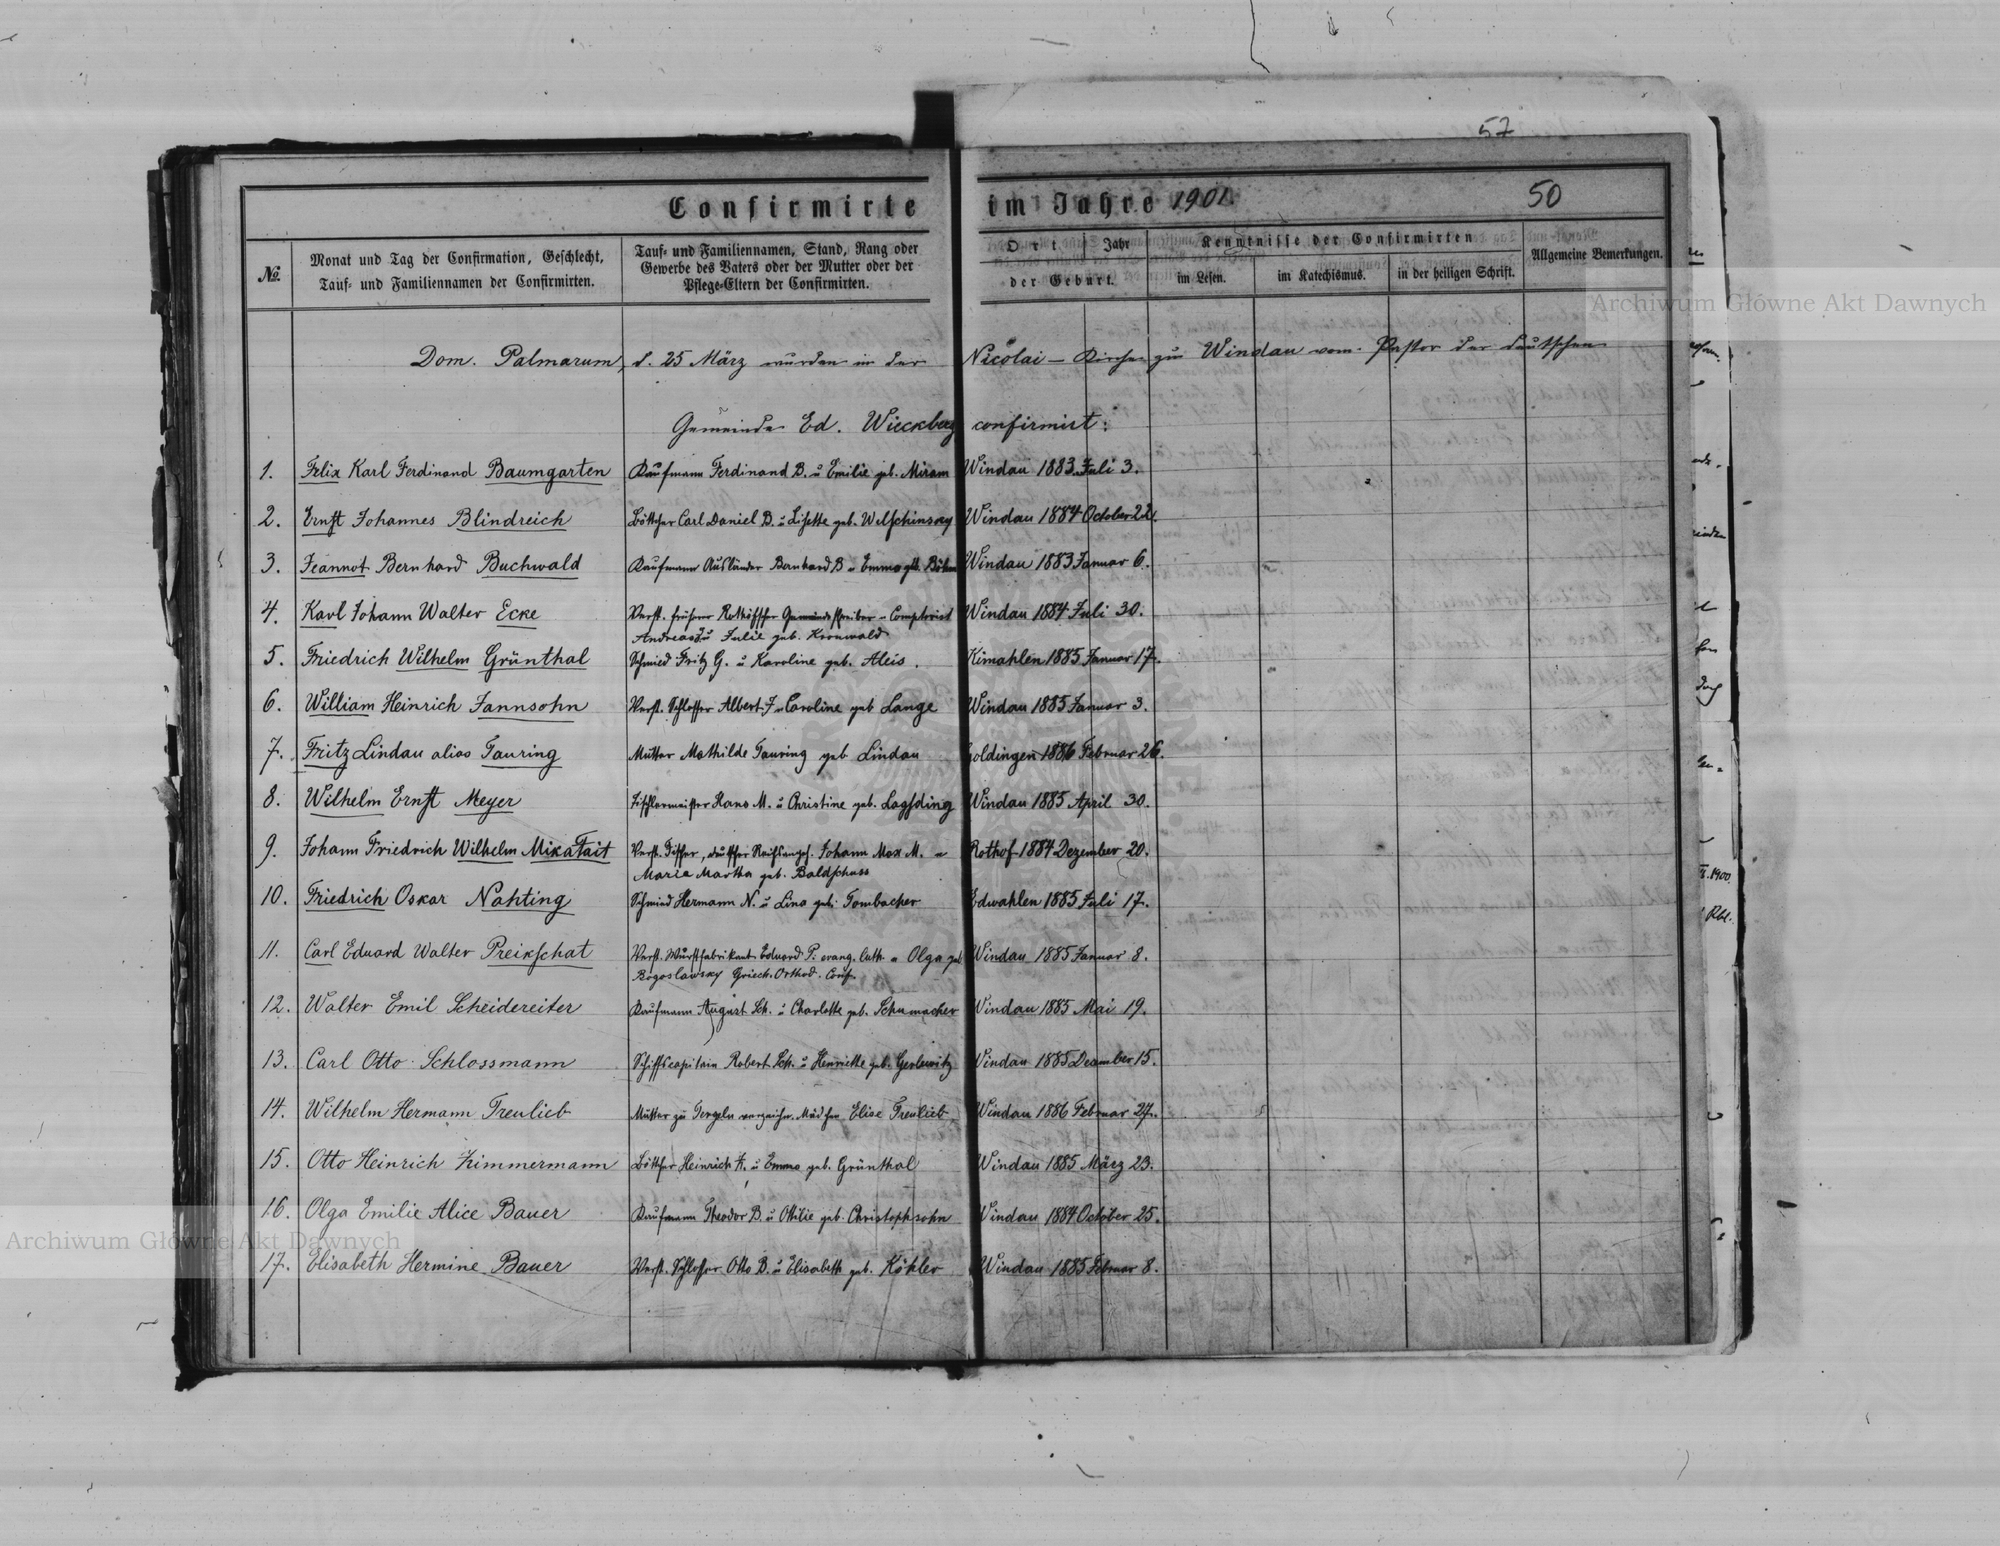 57
50
Confirmirte im Jahre 1901.
No.
Monat und Tag der Confirmation, Geschlecht,
Tauf- und Familiennamen der Confirmirten.
Tauf- und Familiennamen, Stand, Rang oder
Gewerbe des Vaters oder der Mutter oder der
Pflege-Eltern der Confirmirten.
Ort Jahr
der Geburt.
Kenntnisse der Confirmirten
im Lesen. im Katechismus. in der heiligen Schrift.
Allgemeine Bemerkungen.
Dom. Palmarum, d. 25 März wurden in der Nicolai-Kirche zu Windau vom Pastor der deutschen
Gemeinde Ed. Wieckberg confirmirt:
1. Felix Karl Ferdinand Baumgarten Kaufmann Ferdinand B. u Emilie geb. Miram Windau 1883 Juli 3.
2. Ernst Johannes Blindreich Böttcher Carl Daniel B. u Lisette geb. Windau 1884 October 22.
3. Jeannot Bernhard Buchwald Kaufmann Ausländer Bernhard B u Emma geb. Windau 1883 Januar 6.
4. Karl Johann Walter Ecke Verst. früherer Gemeindeschreiber u Comptorist Windau 1884 Juli 30.
Andreas u Julie geb. Kronwald
5. Friedrich Wilhelm Grünthal Schmied Fritz G. u Karoline geb. Aleis. Kimahlen 1885 Januar 17.
6. William Heinrich Jannsohn Verst. Schlosser Albert J u Caroline geb Lange Windau 1885 Januar 3.
7. Fritz Lindau alias Tauring Mutter Mathilde Tauring geb Lindau Goldingen 1886 Februar 26.
8. Wilhelm Ernst Meyer Tischlermeister Hans M. u Christine geb. Lagsding Windau 1885 April 30.
9. Johann Friedrich Wilhelm Mikatait Verst. Johann Max M. u Rothof 1884 Dezember 20.
Marie Martha geb. Baldschuss
10. Friedrich Oskar Nahting Schmied Hermann N. u Lina geb. Tombacher Edwahlen 1885 Juli 17.
11. Carl Eduard Walter Preikschat Verst. Wurstfabrikant Eduard P. evang. luth. u Olga geb Windau 1885 Januar 8.
Bogoslawsky Griech. Orthod. Conf.
12. Walter Emil Scheidereiter Kaufmann August Sch. u Charlotte geb. Schumacher Windau 1885 Mai 19.
13. Carl Otto Schlossmann Schiffscapitain Robert Sch. u Henriette geb. Windau 1885 December 15.
14. Wilhelm Hermann Treulieb Mutter zu verzeichn. Mädchen Elise Treulieb Windau 1886 Februar 27.
15. Otto Heinrich Zimmermann Böttcher Heinrich Z. u Emma geb. Grünthal Windau 1885 März 23.
16. Olga Emilie Alice Bauer Kaufmann Theodor B. u Ottilie geb. Christophsohn Windau 1884 October 25.
17. Elisabeth Hermine Bauer Verst. Schlosser Otto B. u Elisabeth geb. Köhler Windau 1885 Februar 8.
Archiwum Główne Akt Dawnych
Archiwum Główne Akt Dawnych